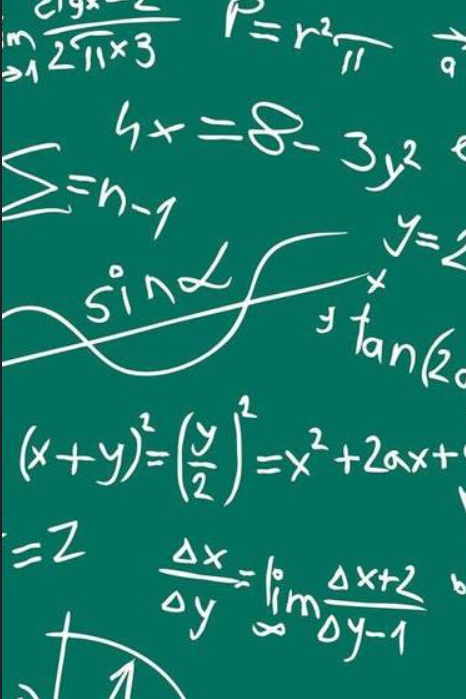 lim ctgx-2/2π×3 P=r²π a
4x=8-3y²
Σ=n-1
y=2
sinα x
y tan(2
(x+y)²=(y/2)²=x²+2ax+
=2
Δx/Δy=lim ∞ Δx+2/Δy-1